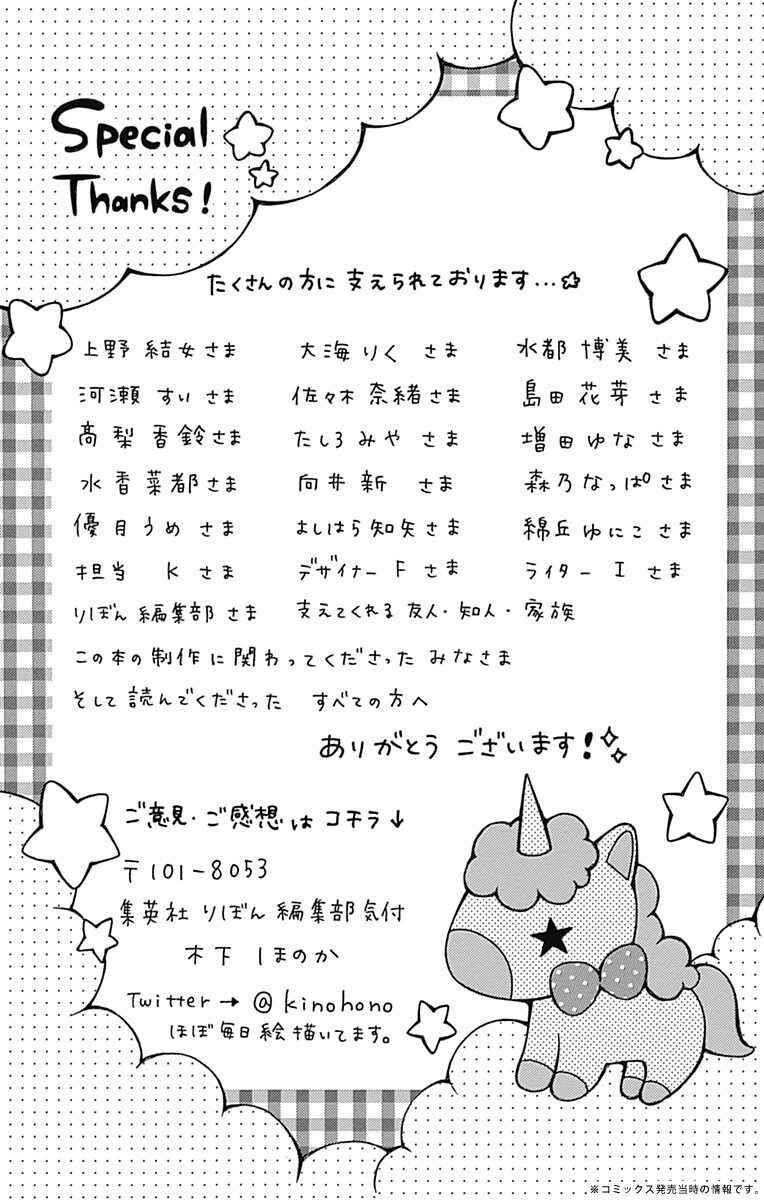 Special
Thanks!
たくさんの方に 支えられております…☆
上野 結女さま 大海りく さま 水都 博美 さま
河瀬 すいさま 佐々木 奈緒さま 島田 花芽 さま
高梨 香鈴さま たしろ みや さま 増田ゆなさま
水香菜都さま 向井新 さま 森乃なっぱさま
優月うめ さま よしはら知矢さま 綿丘ゆにこさま
担当 K さま デザイナー F さま ライター I さま
りぼん編集部さま 支えてくれる 友人・知人・家族
この本の制作に関わってくださった みなさま
そして読んでくださった すべての方へ
ありがとう ございます!
ご意見・ご感想は コチラ↓
〒101-8053
集英社 りぼん 編集部気付
木下 ほのか
Twitter→ @kinohono
ほぼ毎日絵描いてます。
※コミックス発売当時の情報です。